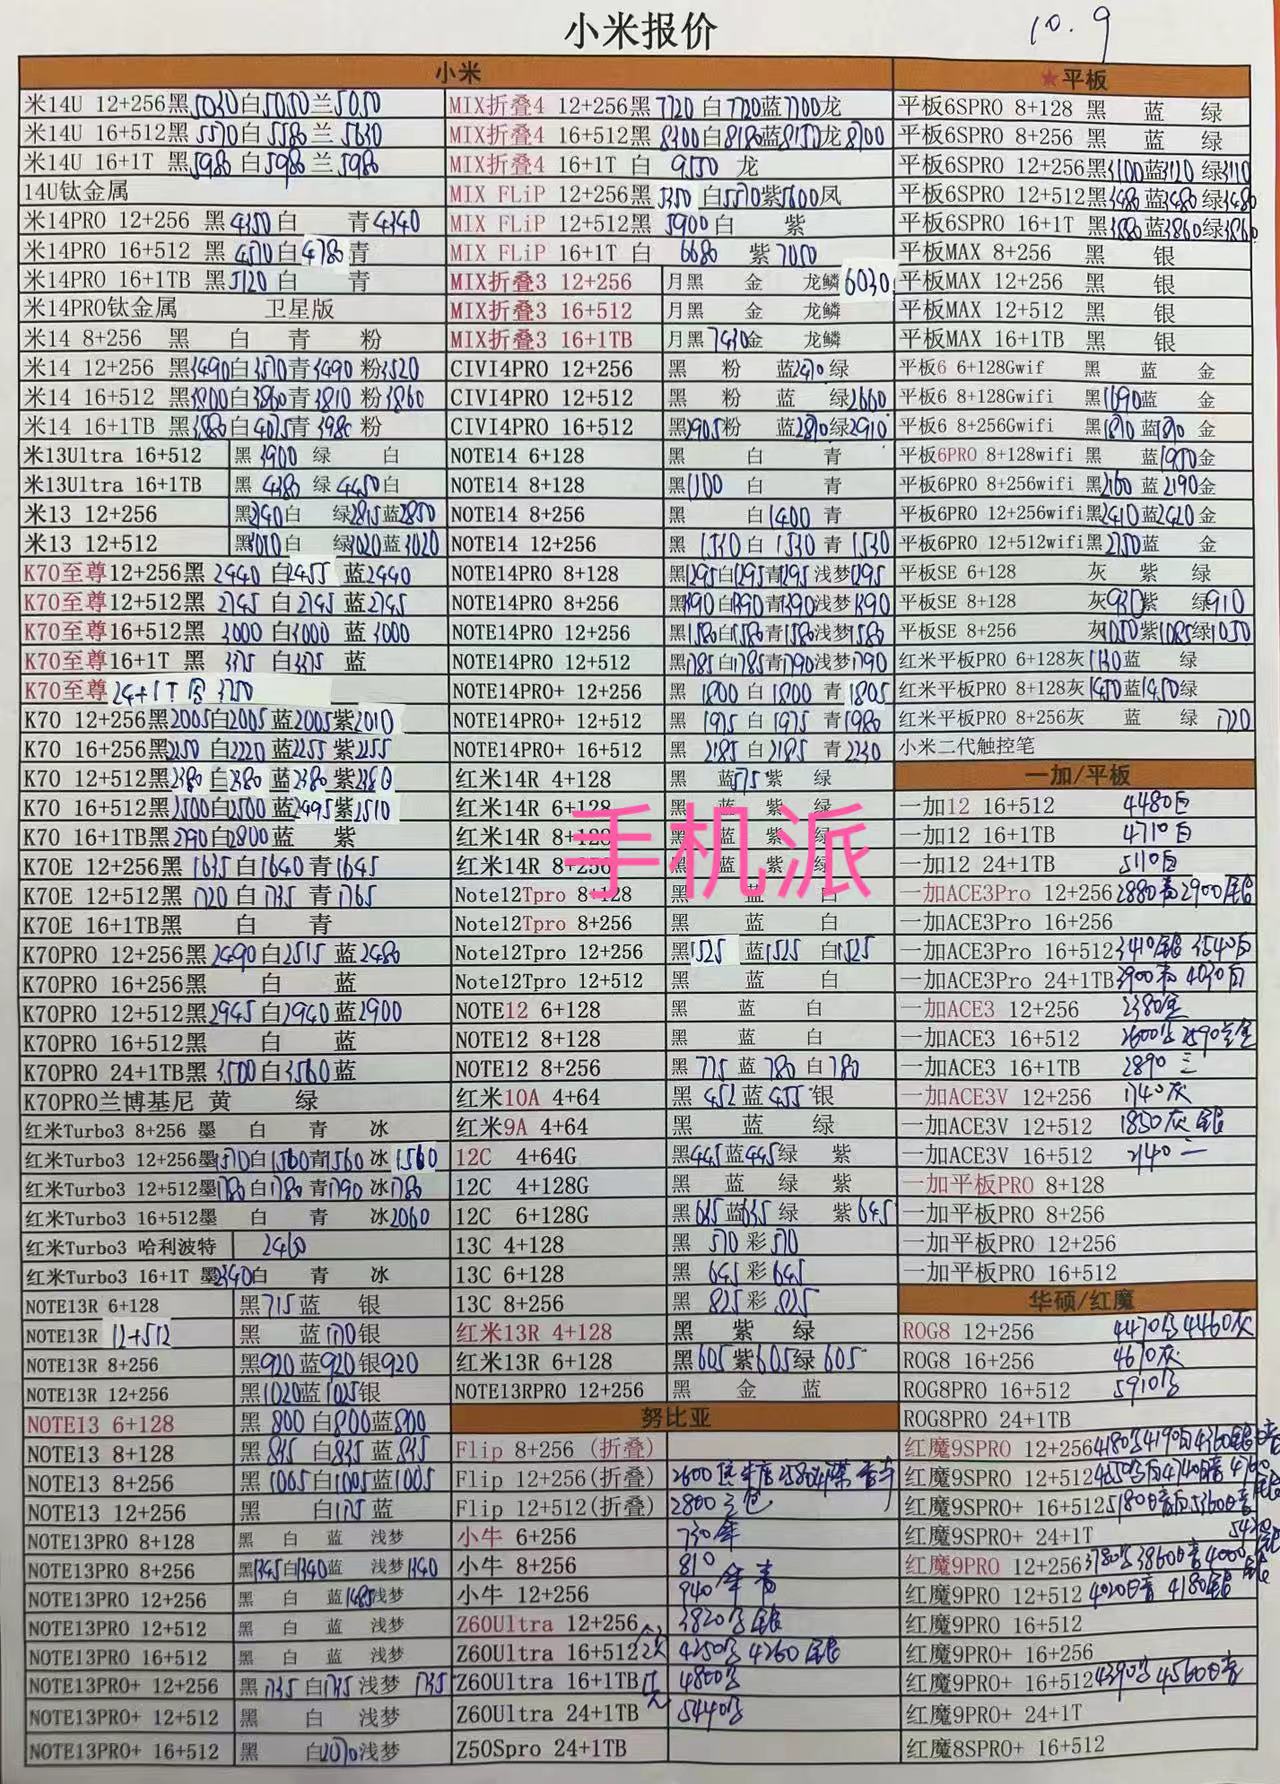 小米报价
10.9
小米
米14U 12+256黑5030白5050兰5050
米14U 16+512黑5570白5580兰5630
米14U 16+1T 黑5980白5980兰5980
14U钛金属
米14PRO 12+256 黑4350白 青4340
米14PRO 16+512 黑4570白4780青
米14PRO 16+1TB 黑5120白 青
米14PRO钛金属 卫星版
米14 8+256 黑 白 青 粉
米14 12+256 黑3490白3510青3490粉3520
米14 16+512 黑3800白3860青3810粉3860
米14 16+1TB 黑3980白4075青3980粉
米13Ultra 16+512 黑3900 绿 白
米13Ultra 16+1TB 黑4380 绿4450白
米13 12+256 黑2740白 绿2815蓝2850
米13 12+512 黑3010白 绿3020蓝3020
K70至尊12+256黑2440 白2455 蓝2440
K70至尊12+512黑2745 白2745 蓝2745
K70至尊16+512黑3000白3000 蓝3000
K70至尊16+1T 黑3375 白3375 蓝
K70至尊24+1T 3750
K70 12+256黑2005白2005蓝2005紫2010
K70 16+256黑2250白2220蓝2255紫2255
K70 12+512黑2380白2380蓝2380紫2380
K70 16+512黑2500白2500蓝2495紫2510
K70 16+1TB黑2790白2800蓝 紫
K70E 12+256黑1635白1640青1645
K70E 12+512黑1720白1735青1765
K70E 16+1TB黑 白 青
K70PRO 12+256黑2490白2515蓝2480
K70PRO 16+256黑 白 蓝
K70PRO 12+512黑2945白2940蓝2900
K70PRO 16+512黑 白 蓝
K70PRO 24+1TB黑3500白3560蓝
K70PRO兰博基尼 黄 绿
红米Turbo3 8+256 墨 白 青 冰
红米Turbo3 12+256墨1570白1560青1560冰1560
红米Turbo3 12+512墨1780白1780青1790冰1780
红米Turbo3 16+512墨 白 青 冰2060
红米Turbo3 哈利波特 2460
红米Turbo3 16+1T 墨2340白 青 冰
NOTE13R 6+128 黑715蓝 银
NOTE13R 12+512 黑 蓝1170银
NOTE13R 8+256 黑920蓝920银920
NOTE13R 12+256 黑1020蓝1025银
NOTE13 6+128 黑800白800蓝800
NOTE13 8+128 黑835白835蓝835
NOTE13 8+256 黑1005白1005蓝1005
NOTE13 12+256 白1175蓝
NOTE13PRO 8+128 黑 白 蓝 浅梦
NOTE13PRO 8+256 黑1345白1340蓝 浅梦1340
NOTE13PRO 12+256 黑 白 蓝1485浅梦
NOTE13PRO 12+512 黑 白 蓝 浅梦
NOTE13PRO 16+512 黑 白 蓝 浅梦
NOTE13PRO+ 12+256 黑1735白1735浅梦1735
NOTE13PRO+ 12+512 黑 白 浅梦
NOTE13PRO+ 16+512 黑 白2070浅梦
MIX折叠4 12+256黑7720白7720蓝7700龙
MIX折叠4 16+512黑8300白8180蓝8150龙8700
MIX折叠4 16+1T 白 9550 龙
MIX FLiP 12+256黑5350白5570紫5600凤
MIX FLiP 12+512黑5900白 紫
MIX FLiP 16+1T 白 6680 紫7050
MIX折叠3 12+256 月黑 金 龙鳞6030
MIX折叠3 16+512 月黑 金 龙鳞
MIX折叠3 16+1TB 月黑7430金 龙鳞
CIVI4PRO 12+256 黑 粉 蓝2470绿
CIVI4PRO 12+512 黑 粉 蓝 绿2660
CIVI4PRO 16+512 黑2905粉 蓝2870绿2910
NOTE14 6+128 黑 白 青
NOTE14 8+128 黑1100 白 青
NOTE14 8+256 黑 白1400青
NOTE14 12+256 黑1530白1530青1530
NOTE14PRO 8+128 黑1295白1295青1295浅梦1295
NOTE14PRO 8+256 黑1390白1390青1390浅梦1390
NOTE14PRO 12+256 黑1580白1580青1580浅梦1580
NOTE14PRO 12+512 黑1785白1785青1790浅梦1790
NOTE14PRO+ 12+256 黑1800白1800青1805
NOTE14PRO+ 12+512 黑1975白1975青1980
NOTE14PRO+ 16+512 黑2185白2185青2230
红米14R 4+128 黑 蓝575紫 绿
红米14R 6+128 黑 蓝 紫 绿
红米14R 8+128 黑 蓝 紫 绿
红米14R 8+256 黑 蓝 紫 绿
手机派
Note12Tpro 8+128 黑 蓝 白
Note12Tpro 8+256 黑 蓝 白
Note12Tpro 12+256 黑1525蓝1525白1525
Note12Tpro 12+512 黑 蓝 白
NOTE12 6+128 黑 蓝 白
NOTE12 8+128 黑 蓝 白
NOTE12 8+256 黑775蓝780白780
红米10A 4+64 黑452蓝455银
红米9A 4+64 黑 蓝 绿
12C 4+64G 黑445蓝445绿 紫
12C 4+128G 黑 蓝 绿 紫
12C 6+128G 黑635蓝635绿 紫645
13C 4+128 黑570彩570
13C 6+128 黑645彩645
13C 8+256 黑825彩825
红米13R 4+128 黑 紫 绿
红米13R 6+128 黑605紫605绿605
NOTE13RPRO 12+256 黑 金 蓝
努比亚
Flip 8+256 (折叠)
Flip 12+256(折叠) 2600 2580
Flip 12+512(折叠) 2800
小牛 6+256 730
小牛 8+256 810
小牛 12+256 940
Z60Ultra 12+256 3820
Z60Ultra 16+512 4250 4260
Z60Ultra 16+1TB 4800
Z60Ultra 24+1TB 5440
Z50Spro 24+1TB
★平板
平板6SPRO 8+128 黑 蓝 绿
平板6SPRO 8+256 黑 蓝 绿
平板6SPRO 12+256黑3100蓝3120绿3110
平板6SPRO 12+512黑3480蓝3480绿3480
平板6SPRO 16+1T 黑3880蓝3860绿3860
平板MAX 8+256 黑 银
平板MAX 12+256 黑 银
平板MAX 12+512 黑 银
平板MAX 16+1TB 黑 银
平板6 6+128Gwif 黑 蓝 金
平板6 8+128Gwifi 黑1690蓝 金
平板6 8+256Gwifi 黑1870蓝1890金
平板6PRO 8+128wifi 黑 蓝1950金
平板6PRO 8+256wifi 黑2160蓝2190金
平板6PRO 12+256wifi黑2410蓝2420金
平板6PRO 12+512wifi黑2750蓝 金
平板SE 6+128 灰 紫 绿
平板SE 8+128 灰930紫 绿910
平板SE 8+256 灰1050紫1085绿1050
红米平板PRO 6+128灰1130蓝 绿
红米平板PRO 8+128灰1450蓝1450绿
红米平板PRO 8+256灰 蓝 绿1720
小米二代触控笔
一加/平板
一加12 16+512 4480白
一加12 16+1TB 4710白
一加12 24+1TB 5110白
一加ACE3Pro 12+256 2880青2900银
一加ACE3Pro 16+256
一加ACE3Pro 16+512 3410银3540白
一加ACE3Pro 24+1TB 3900青4030白
一加ACE3 12+256 2380金
一加ACE3 16+512 2600 2590金
一加ACE3 16+1TB 2890三
一加ACE3V 12+256 1740灰
一加ACE3V 12+512 1830灰银
一加ACE3V 16+512 2140二
一加平板PRO 8+128
一加平板PRO 8+256
一加平板PRO 12+256
一加平板PRO 16+512
华硕/红魔
ROG8 12+256 4470 4460灰
ROG8 16+256 4670灰
ROG8PRO 16+512 5910
ROG8PRO 24+1TB
红魔9SPRO 12+256 4180 4190 4360
红魔9SPRO 12+512 4550 4740
红魔9SPRO+ 16+512 5180 5360
红魔9SPRO+ 24+1T
红魔9PRO 12+256 3780 3860 4000
红魔9PRO 12+512 4020 4180
红魔9PRO 16+512
红魔9PRO+ 16+256
红魔9PRO+ 16+512 4390 4560
红魔9PRO+ 24+1T
红魔8SPRO+ 16+512